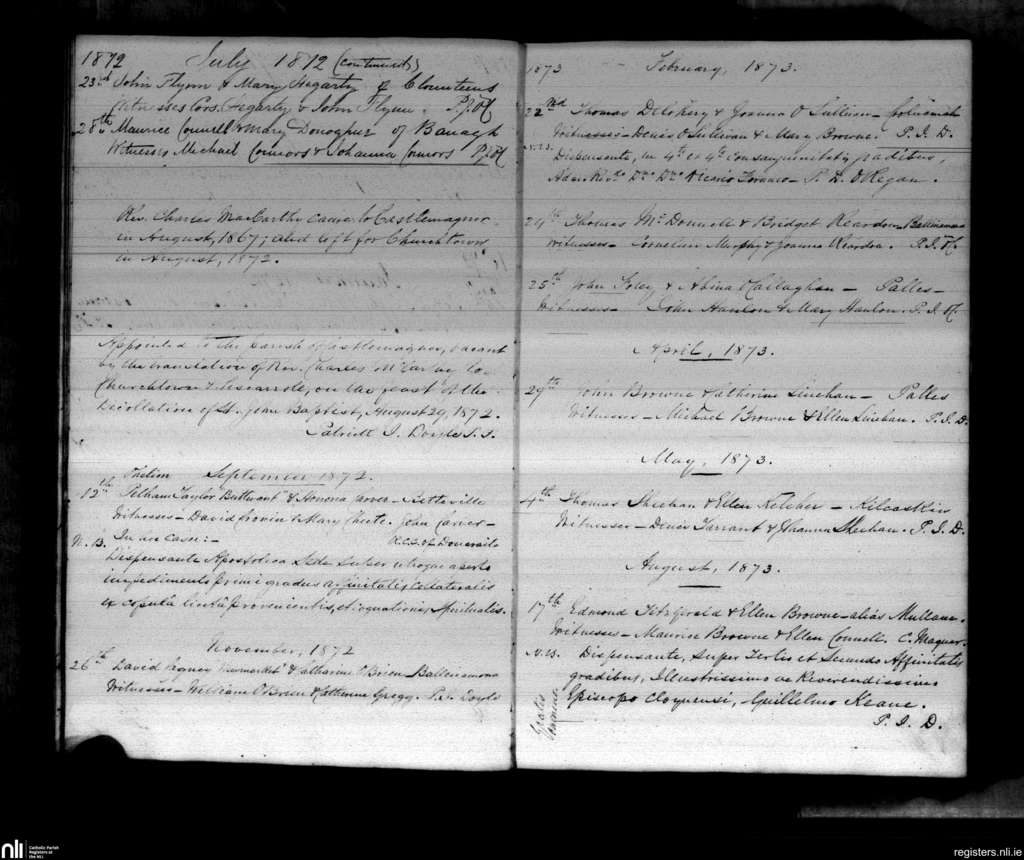 1872 July 1872 (continued)
23rd John Flynn & Mary Hegarty of Clounteens
Witnesses Cors. Hegarty & John Flynn. PJH
28th Maurice Connell & Mary Donoghue of Banagh
Witnesses Michael Connors & Johanna Connors PJH
Rev. Charles MacCarthy came to Castlemagner
in August, 1867; and left for Churchtown
in August, 1872.
Appointed to the parish of Castlemagner, vacant
by the translation of Rev. Charles McCarthy to
Churchtown & Liscarroll, on the feast of the
Decollation of St. John Baptist, August 29, 1872.
Patrick J. Doyle
September 1872.
12th Pelham Taylor Buttevant & Honora Carver
Witnesses - David & Mary John Carver -
N.B. In hoc casu:- of Doneraile
Dispensante Apostolica Sede super utroque
impedimento primi gradus affinitatis collateralis
ex copula illicita provenientis, et cognationis spiritualis.
November, 1872
26th David Newmarket & Catharine O'Brien - Ballinamona
Witnesses - William O'Brien & Catherine Gregg. P.J. Doyle
1873 - February, 1873.
22nd Thomas & Joanna O'Sullivan -
Witnesses - Denis O'Sullivan & Mary Browne. P. J. D.
N.B. Dispensante, in 4to et 4to consanguinitatis gradibus,
24th Thomas McDonnell & Bridget Reardon - Ballinamona
Witnesses - Cornelius Murphy & Joanna Reardon. P.J.H.
25th John Foley & Abina Callaghan - Palles -
Witnesses - John Hanlon & Mary Hanlon. P.J.H.
April, 1873.
29th John Browne & Catherine Linehan - Palles
Witnesses - Michael Browne & Ellen Linehan. P.J.D.
May, 1873.
4th Thomas Sheehan & Ellen Keleher - Kilcaskin
Witnesses - Denis Tarrant & Johanna Sheehan. P.J.D.
August, 1873.
17th Edmond Fitzgerald & Ellen Browne - alias Mullane.
Witnesses - Maurice Browne & Ellen Connell. C. Magner.
N.B. Dispensante, super Tertio et Secundo Affinitatis
gradibus, Illustrissimo ac Reverendissimo
Episcopo Cloynensi, - Guillelmo Keane.
P. J. D.
nli Catholic Parish
Registers at
the NLI
registers.nli.ie